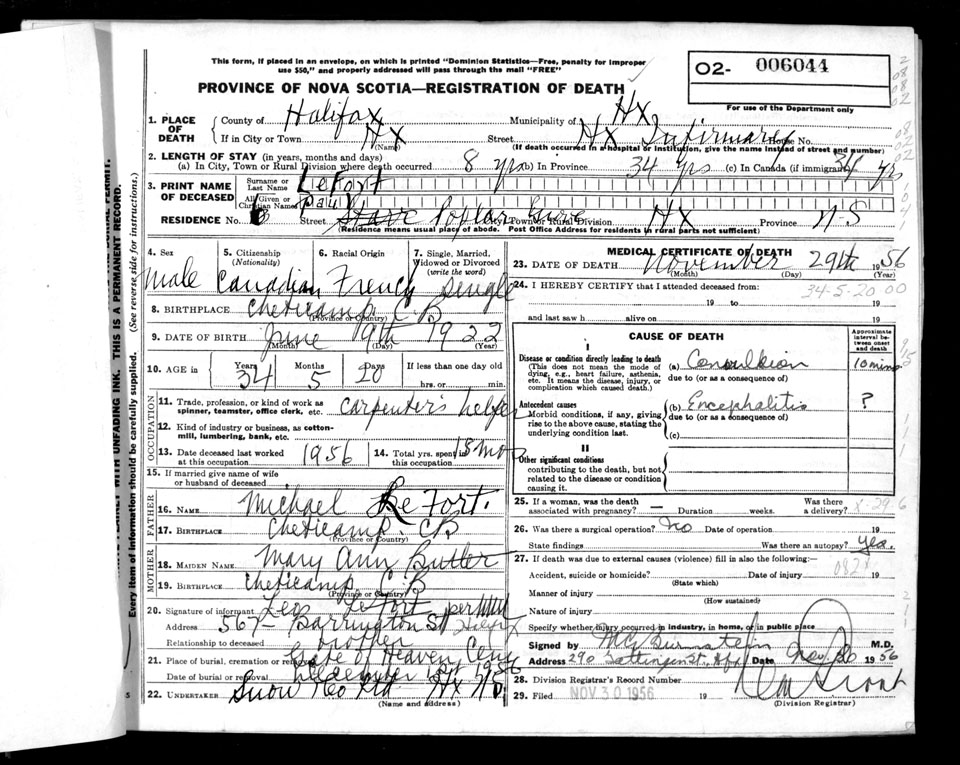 This form, if placed in an envelope, on which is printed "Dominion Statistics—Free, penalty for improper
use $50," and properly addressed will pass through the mail "FREE"
O2- 006044
PROVINCE OF NOVA SCOTIA—REGISTRATION OF DEATH
For use of the Department only
1. PLACE OF DEATH { County of Halifax Municipality of Hx
If in City or Town Hx (Name) Street Hx Infirmary House No.
(If death occurred in a hospital or institution, give the name instead of street and number)
2. LENGTH OF STAY (in years, months and days)
(a) In City, Town or Rural Division where death occurred 8 yrs (b) In Province 34 yrs (c) In Canada (if immigrant) 34 yrs
3. PRINT NAME OF DECEASED { Surname or Last Name LeFort
All Given or Christian Names Paul
RESIDENCE No. 6 Street Poplar Grove City, Town or Rural Division Hx Province N-S
(Residence means usual place of abode. Post Office Address for residents in rural parts not sufficient)
4. Sex 5. Citizenship (Nationality) 6. Racial Origin 7. Single, Married, Widowed or Divorced (write the word)
male Canadian French Single
8. BIRTHPLACE Cheticamp C.B
(Province or Country)
9. DATE OF BIRTH June 9th 1922
(Month) (Day) (Year)
10. AGE in Years Months Days If less than one day old
34 5 20 hrs. or min.
OCCUPATION
11. Trade, profession, or kind of work as spinner, teamster, office clerk, etc. carpenter's helper
12. Kind of industry or business, as cotton-mill, lumbering, bank, etc.
13. Date deceased last worked at this occupation 1956 14. Total yrs. spent in this occupation 18 mos
15. If married give name of wife or husband of deceased
FATHER
16. NAME Michael LeFort.
17. BIRTHPLACE Cheticamp. CB
(Province or Country)
MOTHER
18. MAIDEN NAME Mary Ann Butler
19. BIRTHPLACE Cheticamp C B
(Province or Country)
20. Signature of informant Leo LeFort per
Address 567- Barrington St Halifax
Relationship to deceased brother
21. Place of burial, cremation or removal Gate of Heaven Cem
Date of burial or removal December 1st 1956
22. UNDERTAKER Snow & Co Ltd. Hx N.S.
(Name and address)
MEDICAL CERTIFICATE OF DEATH
23. DATE OF DEATH November 29th 1956
(Month) (Day) (Year)
24. I HEREBY CERTIFY that I attended deceased from 34-5-20 00
19 to 19
and last saw h alive on 19
CAUSE OF DEATH
Approximate interval between onset and death
I
Disease or condition directly leading to death (a) Convulsion 10 mins
(This does not mean the mode of dying, e.g., heart failure, asthenia, etc. It means the disease, injury, or complication which caused death.) due to (or as a consequence of)
Antecedent causes (b) Encephalitis ?
Morbid conditions, if any, giving rise to the above cause, stating the underlying condition last. due to (or as a consequence of)
(c)
II
Other significant conditions
contributing to the death, but not related to the disease or condition causing it.
25. If a woman, was the death associated with pregnancy? — Duration weeks. Was there a delivery?
26. Was there a surgical operation? No Date of operation 19
State findings Was there an autopsy? Yes.
27. If death was due to external causes (violence) fill in also the following:—
Accident, suicide or homicide? Date of injury 19
(State which)
Manner of injury
(How sustained)
Nature of injury
Specify whether injury occurred in industry, in home, or in public place
Signed by M.D.
Address 290 Gottingen St. Hfx Date Nov 30 1956
28. Division Registrar's Record Number
29. Filed NOV 30 1956 19
(Division Registrar)
WITH UNFADING INK. THIS IS A PERMANENT RECORD.
Every item of information should be carefully supplied. (See reverse side for instructions.)